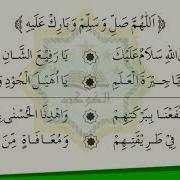 ﴿ اَللّٰهُمَّ صَلِّ وَسَلِّمْ وَبَارِكْ عَلَيْهِ ﴾
اللّٰهِ سَلَامٌ عَلَيْكَ ۞ يَا رَفِيْعَ الشَّانِ
يَا جِيْرَةَ الْعَلَمِ ۞ يَا أُهَيْلَ الْجُوْدِ وَ
بِبَرْكَتِهِمْ ۞ وَاهْدِنَا الْحُسْنٰى
فِيْ طَرِيْقَتِهِمْ ۞ وَمُعَافَاةٍ مِنَ